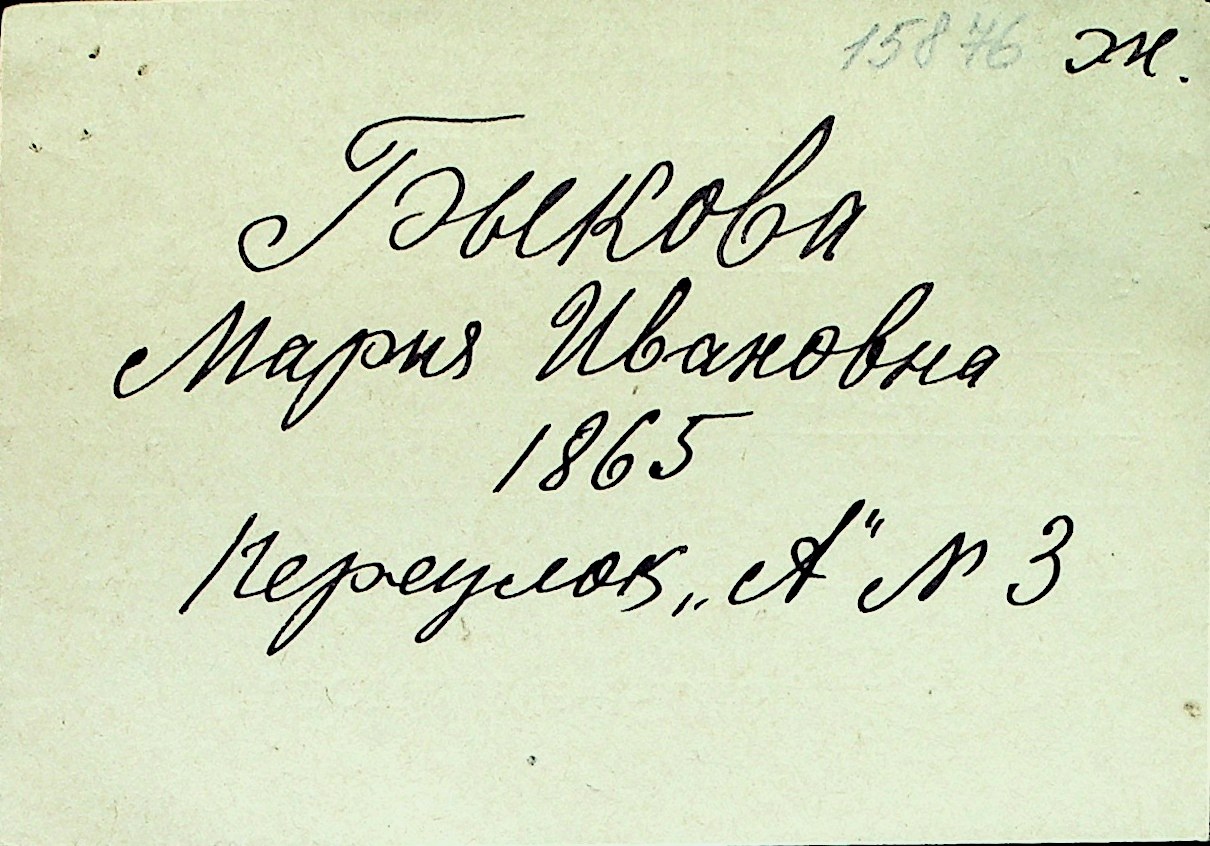 15876 ж.
Быкова
Мария Ивановна
1865
Переулок „А" № 3